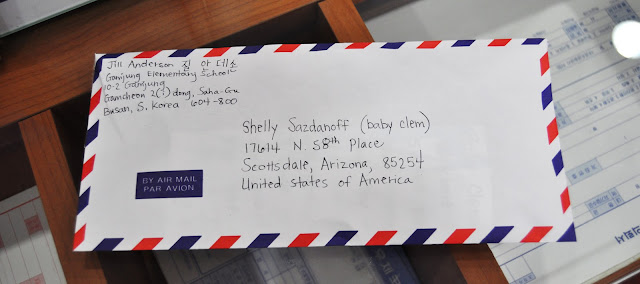 Jill Anderson 질 안데슨
Ganjung Elementary School
10-2 Ganjung
Gamcheon 2(i) dong, Saha-Gu
Busan, S. Korea 604-800
Shelly Sazdanoff (baby clem)
17614 N. 58th Place
Scottsdale, Arizona, 85254
United States of America
BY AIR MAIL
PAR AVION